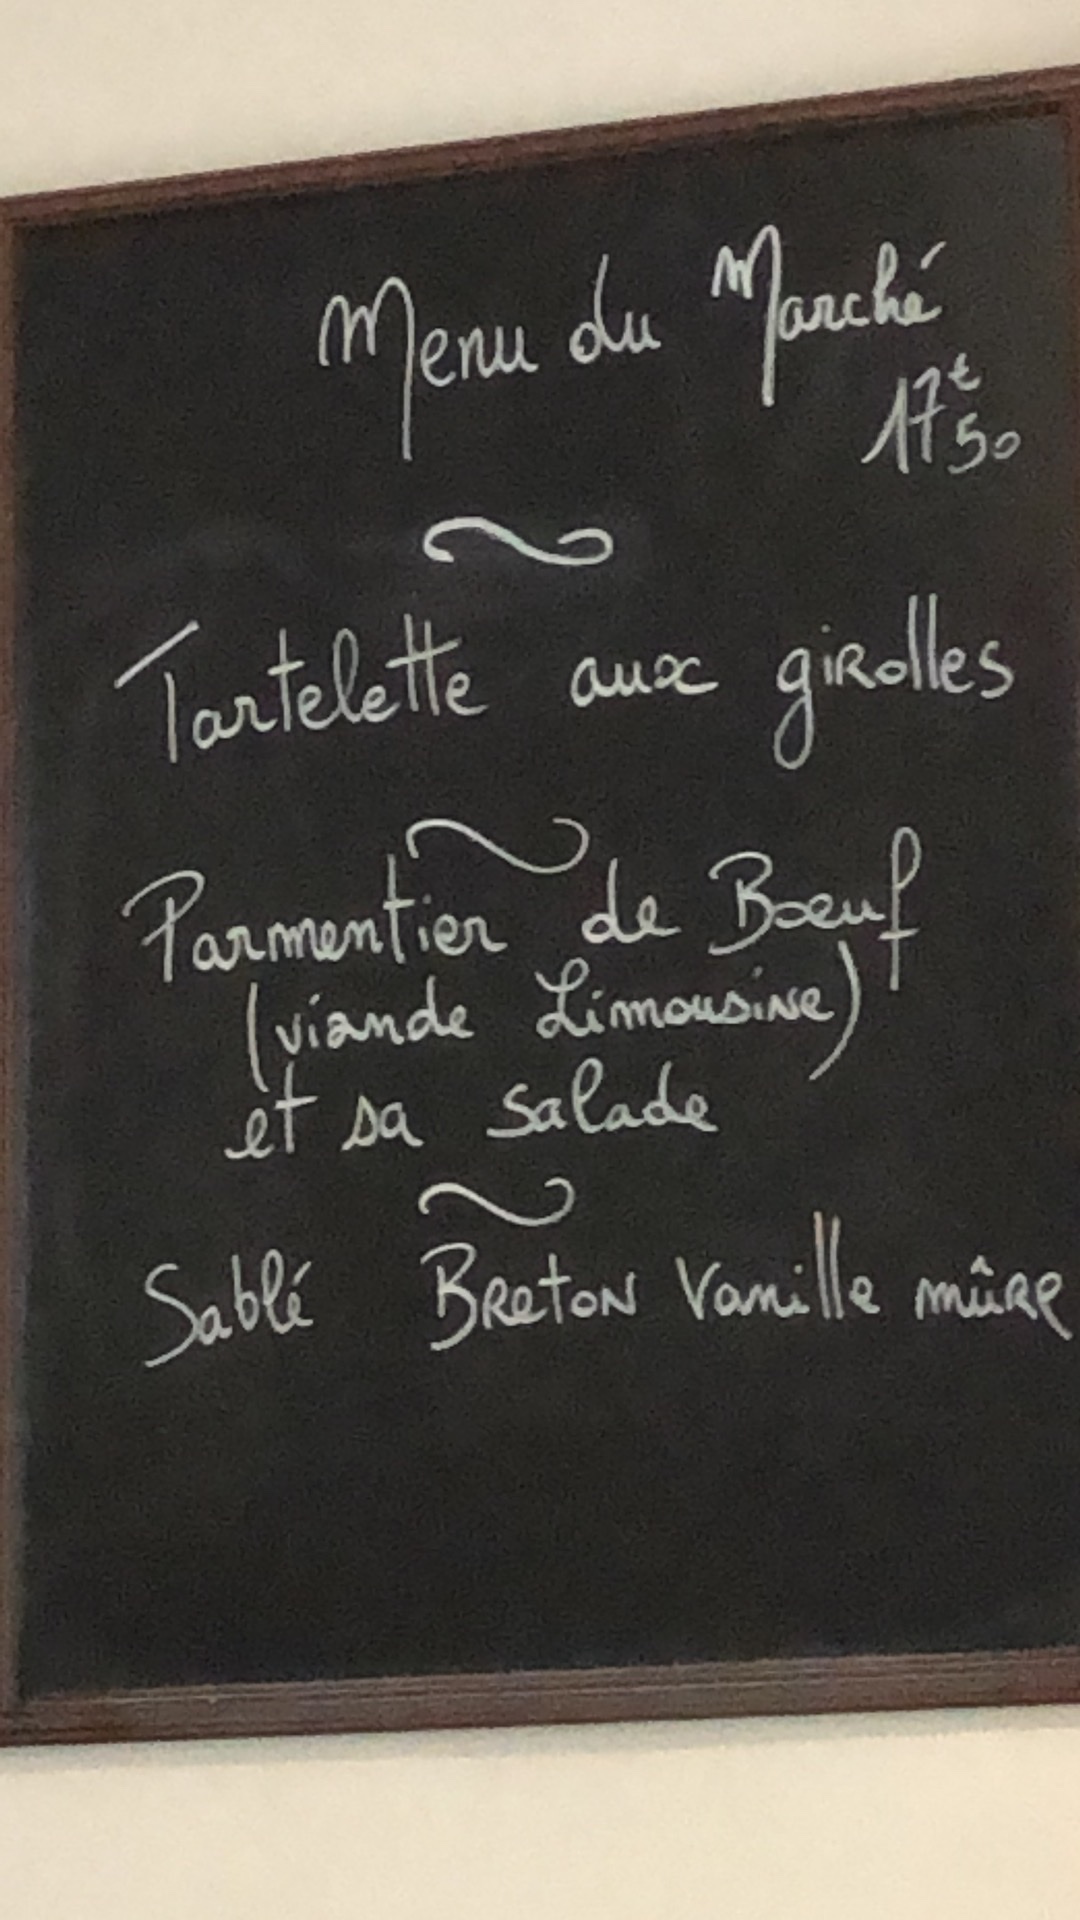 Menu du Marché
17€50
Tartelette aux girolles
Parmentier de Bœuf
(viande Limousine)
et sa salade
Sablé Breton Vanille mûre